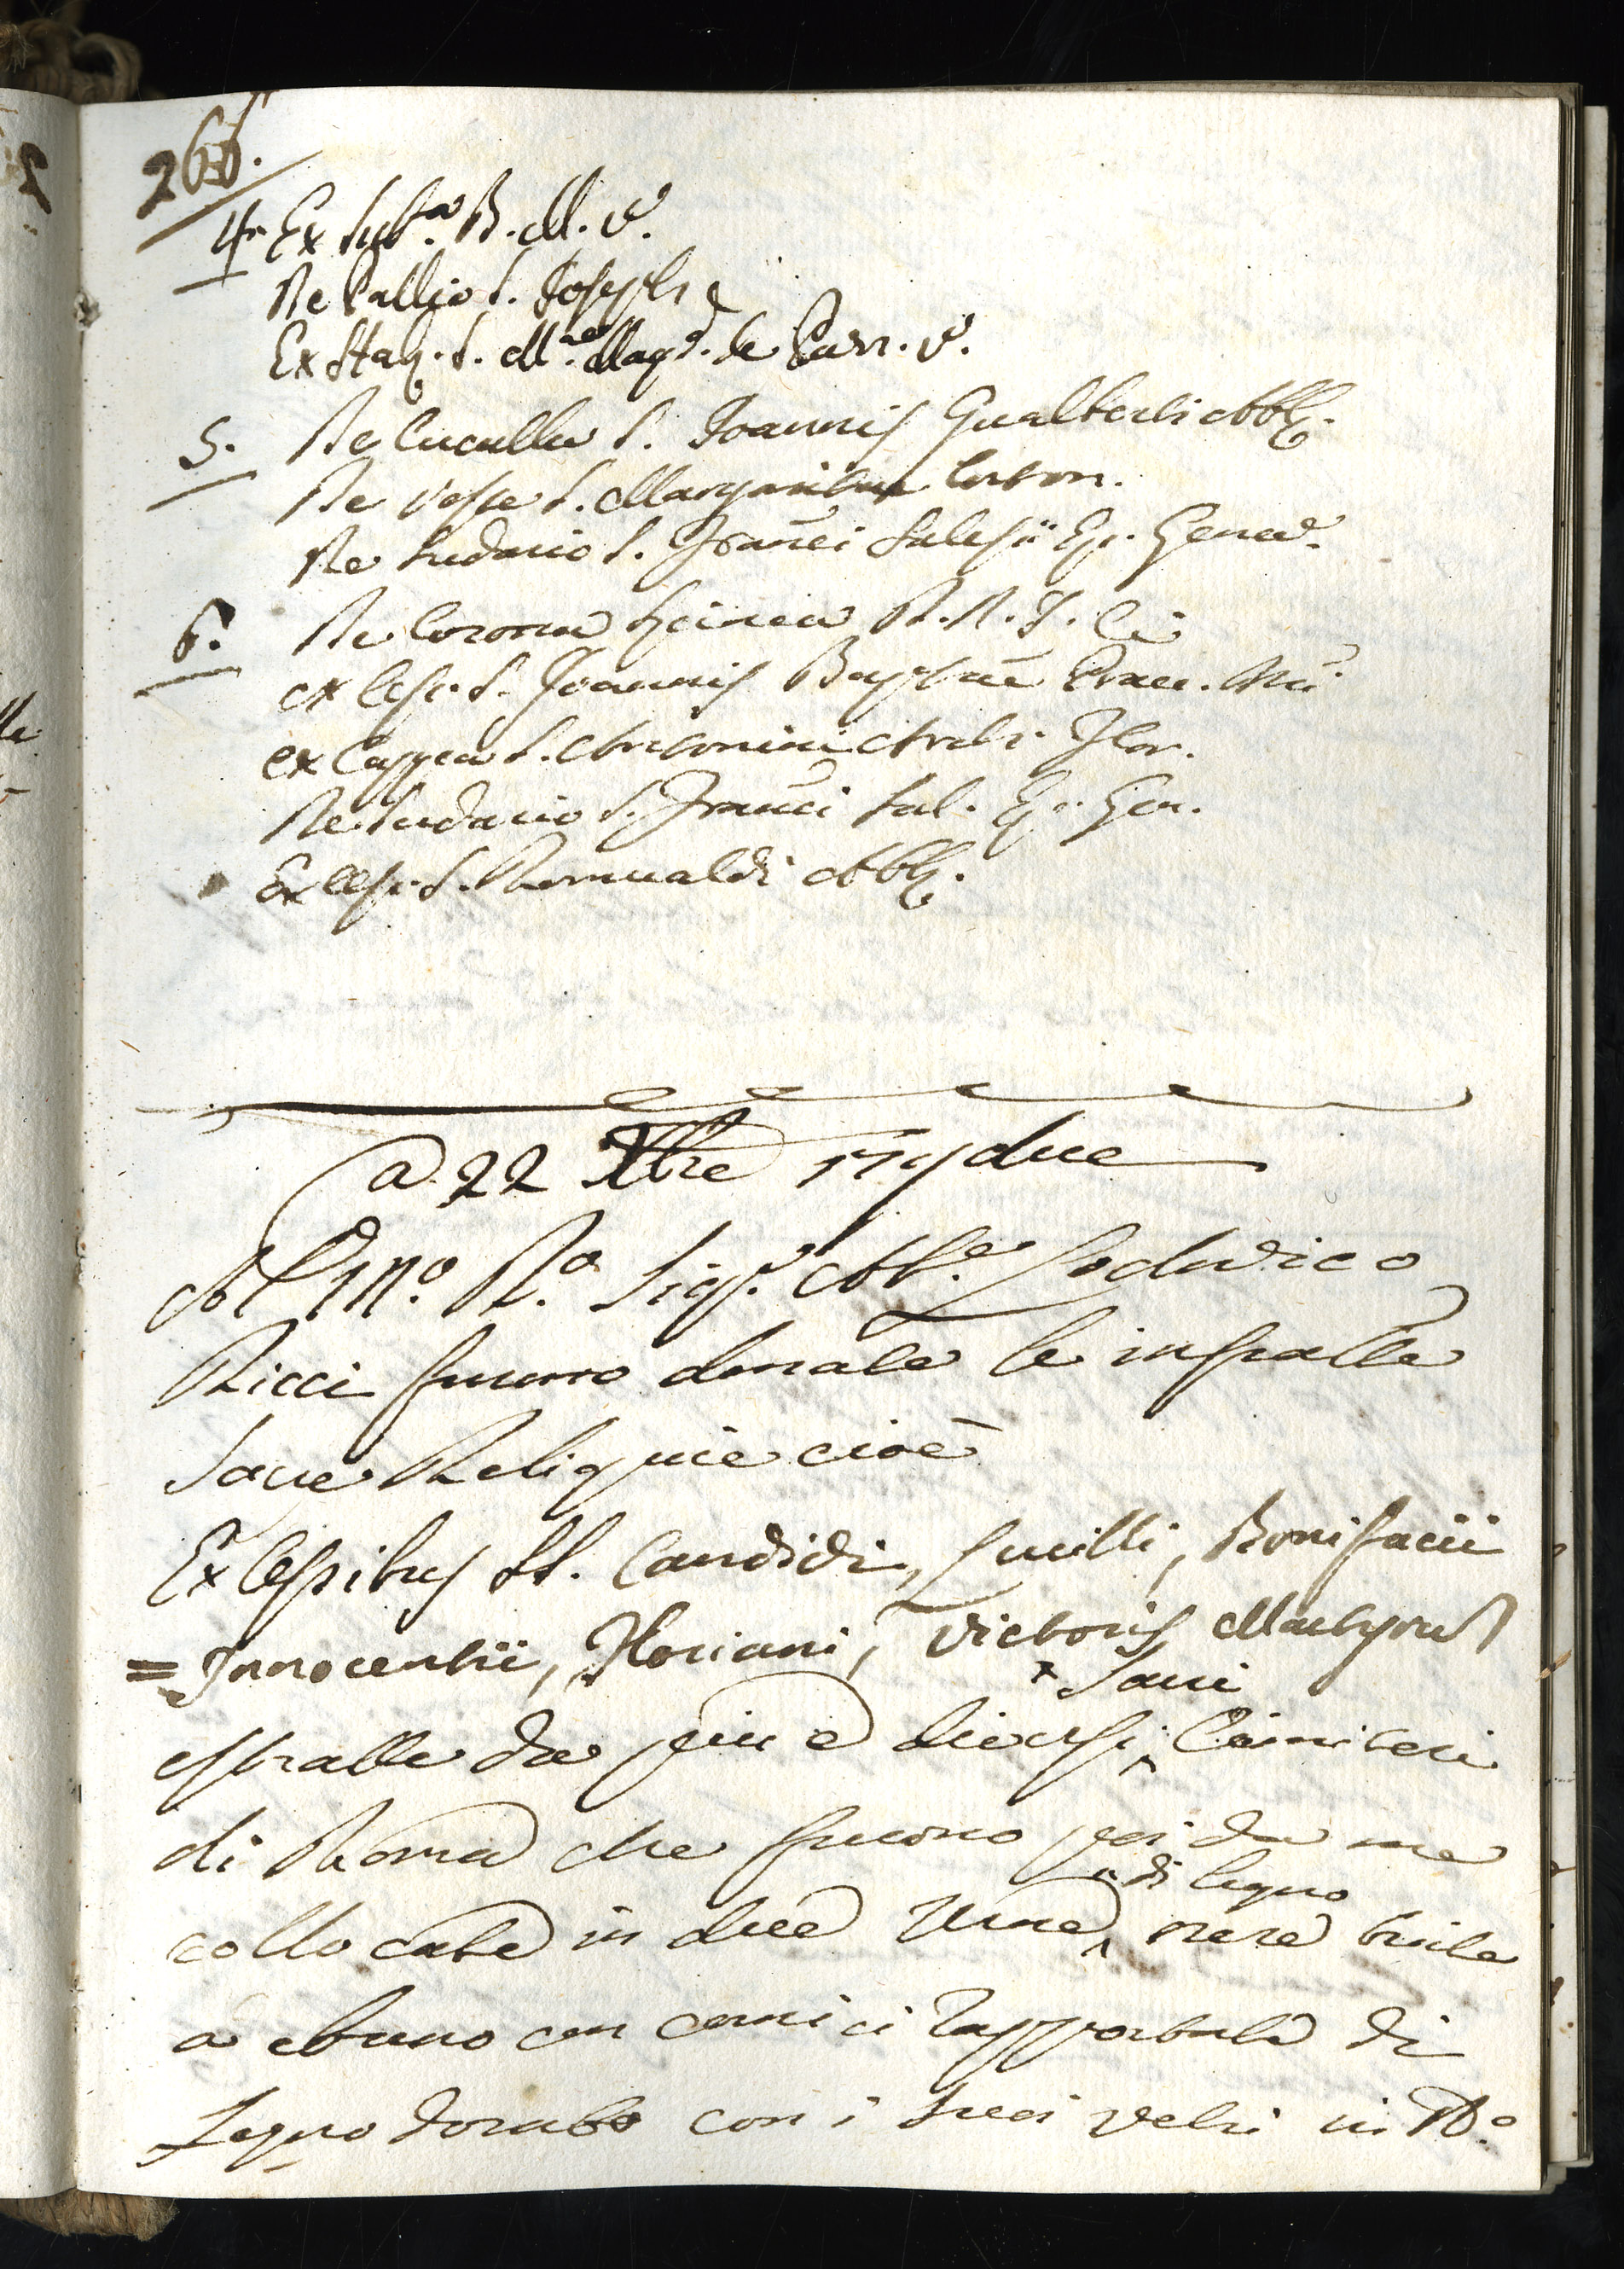 266.
4. Ex Sub.a B. M. V.
De Pallio S. Joseph
Ex S. M.a Magd. de Pazz. V.
5. De Cuculla S. Joannis Gualberti Abb.
De Veste S. Margaritae Corton.
De Sudario S. Franci Salesii Ep. Genev.
6. De Corona Spinea D. N. J. C.
ex Ossi. S. Joannis Baptae Prae.
ex Cappa S. Antonini Archi. Flor.
De Sudario S. Franci Sal. Ep. Gen.
Ex Ossi. S. Romualdi Abb.
a 22 Xbre
Al M.o R.o Sig.r Ab.e Lodovico
Ricci furono donate le infratte
Sante Reliquie cioè
Ex Ossibus SS. Candidi, Bonifacii
= Innocentii, Floriani, Victoris, Martyrum
x Santi
estratte da piu e diversi ^ Cimiteri
di Roma che furono poi da me
di legno
collocate in due Urne ^ nere tinte
a ebano con cornici rapportate di
Legno dorato con i suoi vetri in